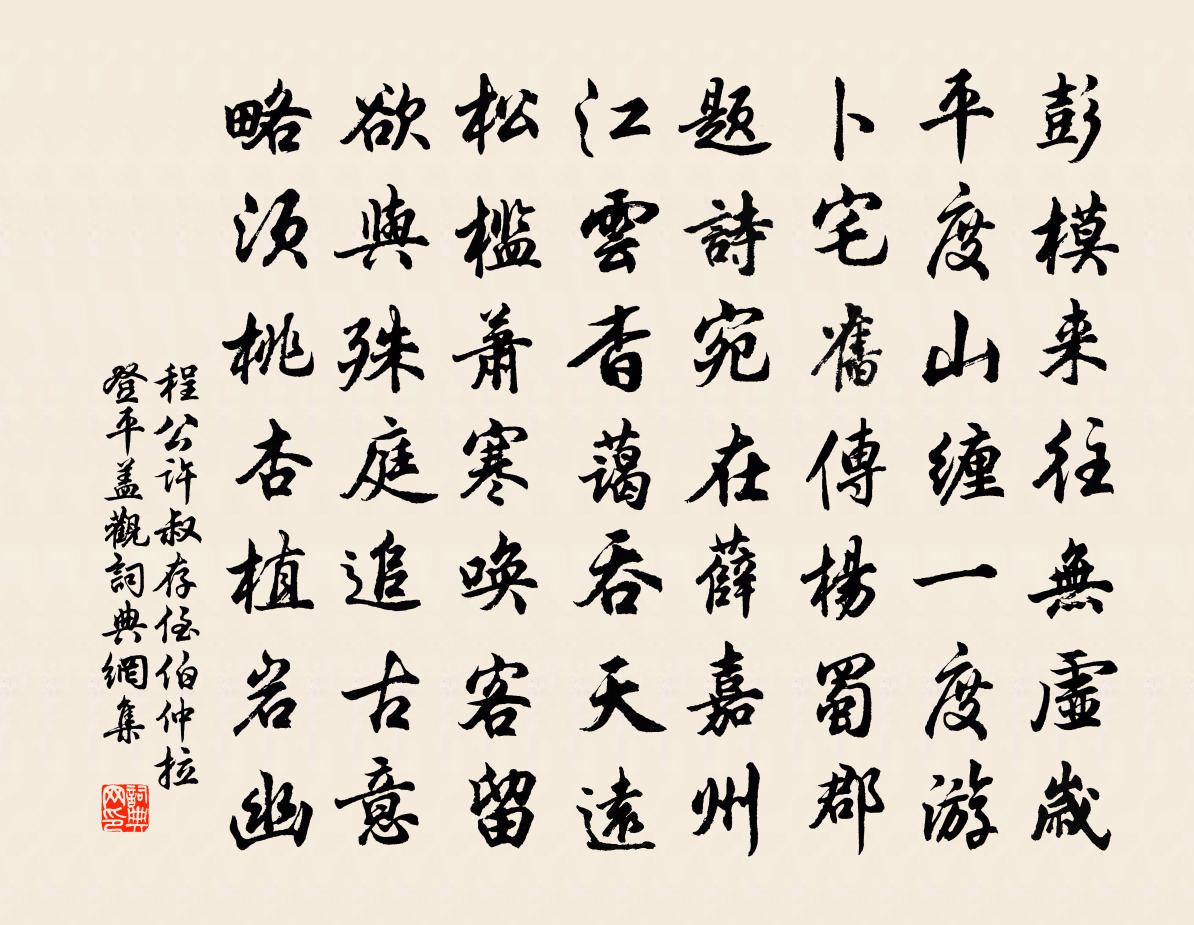 彭模来往無虛歲
平度山纏一度游
卜宅舊傳楊蜀郡
題詩宛在薛嘉州
江雲杳藹吞天遠
松檻蕭寒喚客留
欲與殊庭追古意
略須桃杏植岩幽
程公許叔存侄伯仲拉
登平蓋觀詞典網集
詞典網印